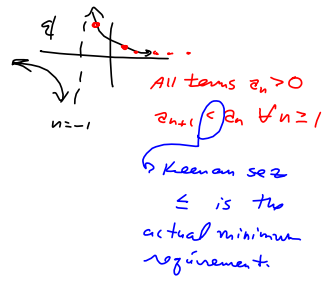 n=-1
All terms aₙ>0
aₙ₊₁ < aₙ ∀n≥1
Keenan sez
≤ is the
actual minimum
requirement.